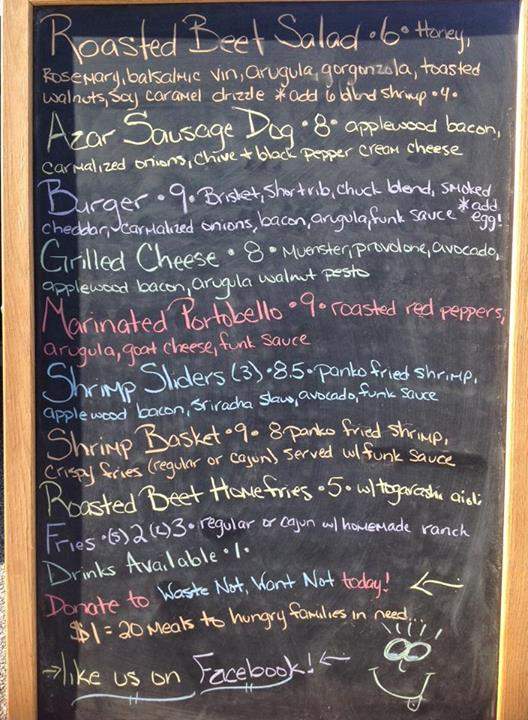 Roasted Beet Salad • 6 • Honey,
Rosemary, balsalmic vin, arugula, gorgonzola, toasted
walnuts, Soy caramel drizzle *add 6 blknd shrimp • 4 •
Azar Sausage Dog • 8 • applewood bacon,
carmalized onions, chive + black pepper cream cheese
Burger • 9 • Brisket, Short rib, chuck blend, smoked
cheddar, carmalized onions, bacon, arugula, funk sauce *add egg!
Grilled Cheese • 8 • Muenster, provolone, avocado,
applewood bacon, arugula walnut pesto
Marinated Portobello • 9 • roasted red peppers,
arugula, goat cheese, funk sauce
Shrimp Sliders (3) • 8.5 • panko fried shrimp,
applewood bacon, Sriracha slaw, avocado, funk sauce
Shrimp Basket • 9 • 8 panko fried shrimp,
crispy fries (regular or cajun) served w/ funk sauce
Roasted Beet Homefries • 5 • w/ togarashi aioli
Fries • (s) 2 (L) 3 • regular or cajun w/ homemade ranch
Drinks Available • 1 •
Donate to Waste Not, Want Not today!
$1 = 20 meals to hungry families in need...
like us on Facebook!